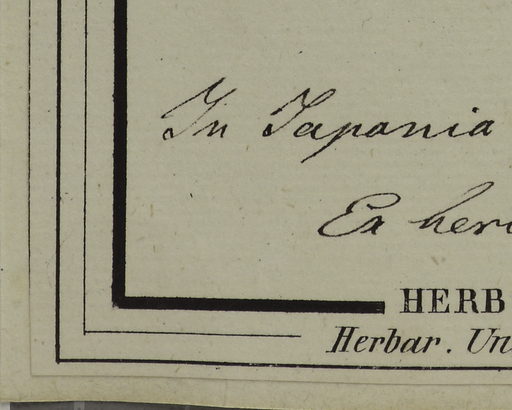 In Japania
Ex her
HERB
Herbar. Un